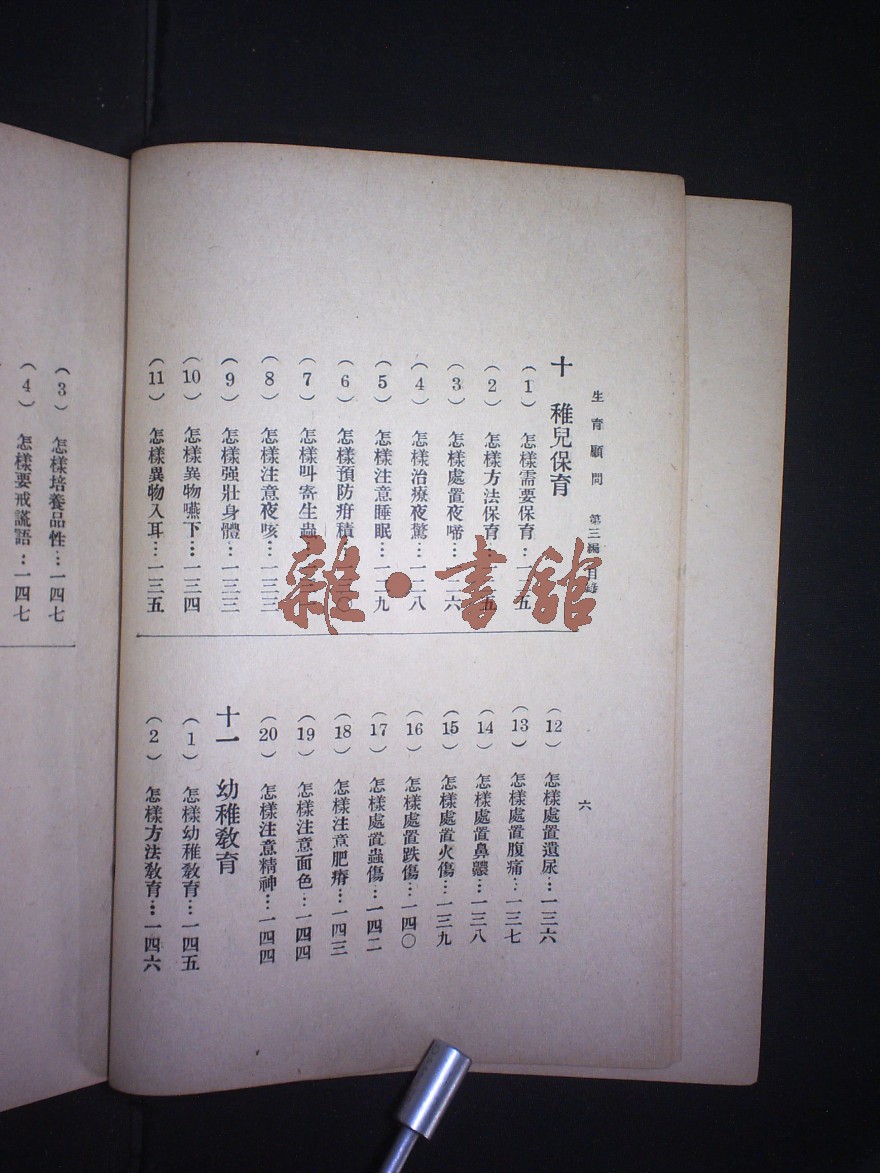 生育顧問 第三編 目錄
六
十 稚兒保育
(1) 怎樣需要保育…一二五
(2) 怎樣方法保育
(3) 怎樣處置夜啼…一二六
(4) 怎樣治療夜驚…一二八
(5) 怎樣注意睡眠…一二九
(6) 怎樣預防疳積
(7) 怎樣叫寄生蟲
(8) 怎樣注意夜咳…一三三
(9) 怎樣强壯身體…一三三
(10) 怎樣異物嚥下…一三四
(11) 怎樣異物入耳…一三五
(12) 怎樣處置遺尿…一三六
(13) 怎樣處置腹痛…一三七
(14) 怎樣處置鼻衂…一三八
(15) 怎樣處置火傷…一三九
(16) 怎樣處置跌傷…一四〇
(17) 怎樣處置蟲傷…一四二
(18) 怎樣注意肥瘠…一四三
(19) 怎樣注意面色…一四四
(20) 怎樣注意精神…一四四
十一 幼稚敎育
(1) 怎樣幼稚敎育…一四五
(2) 怎樣方法敎育…一四六
(3) 怎樣培養品性…一四七
(4) 怎樣要戒謊語…一四七
雜·書館